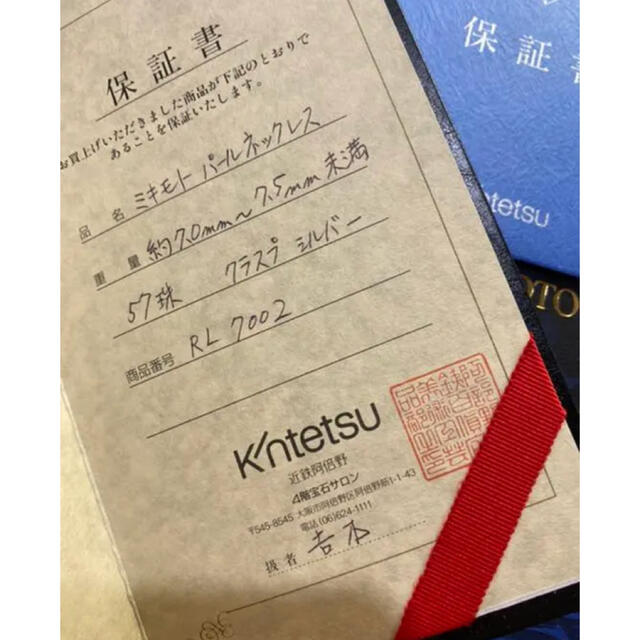 保証書
お買上げいただきました商品が下記のとおりで
あることを保証いたします。
品名 ミキモト パールネックレス
重量 約7.0mm~7.5mm未満
57珠 クラスプ シルバー
商品番号 RL 7002
Kintetsu
近鉄阿倍野
4階宝石サロン
〒545-8545 大阪市阿倍野区阿倍野筋1-1-43
電話(06)624-1111
扱者 吉本
保証書
ntetsu
OTO